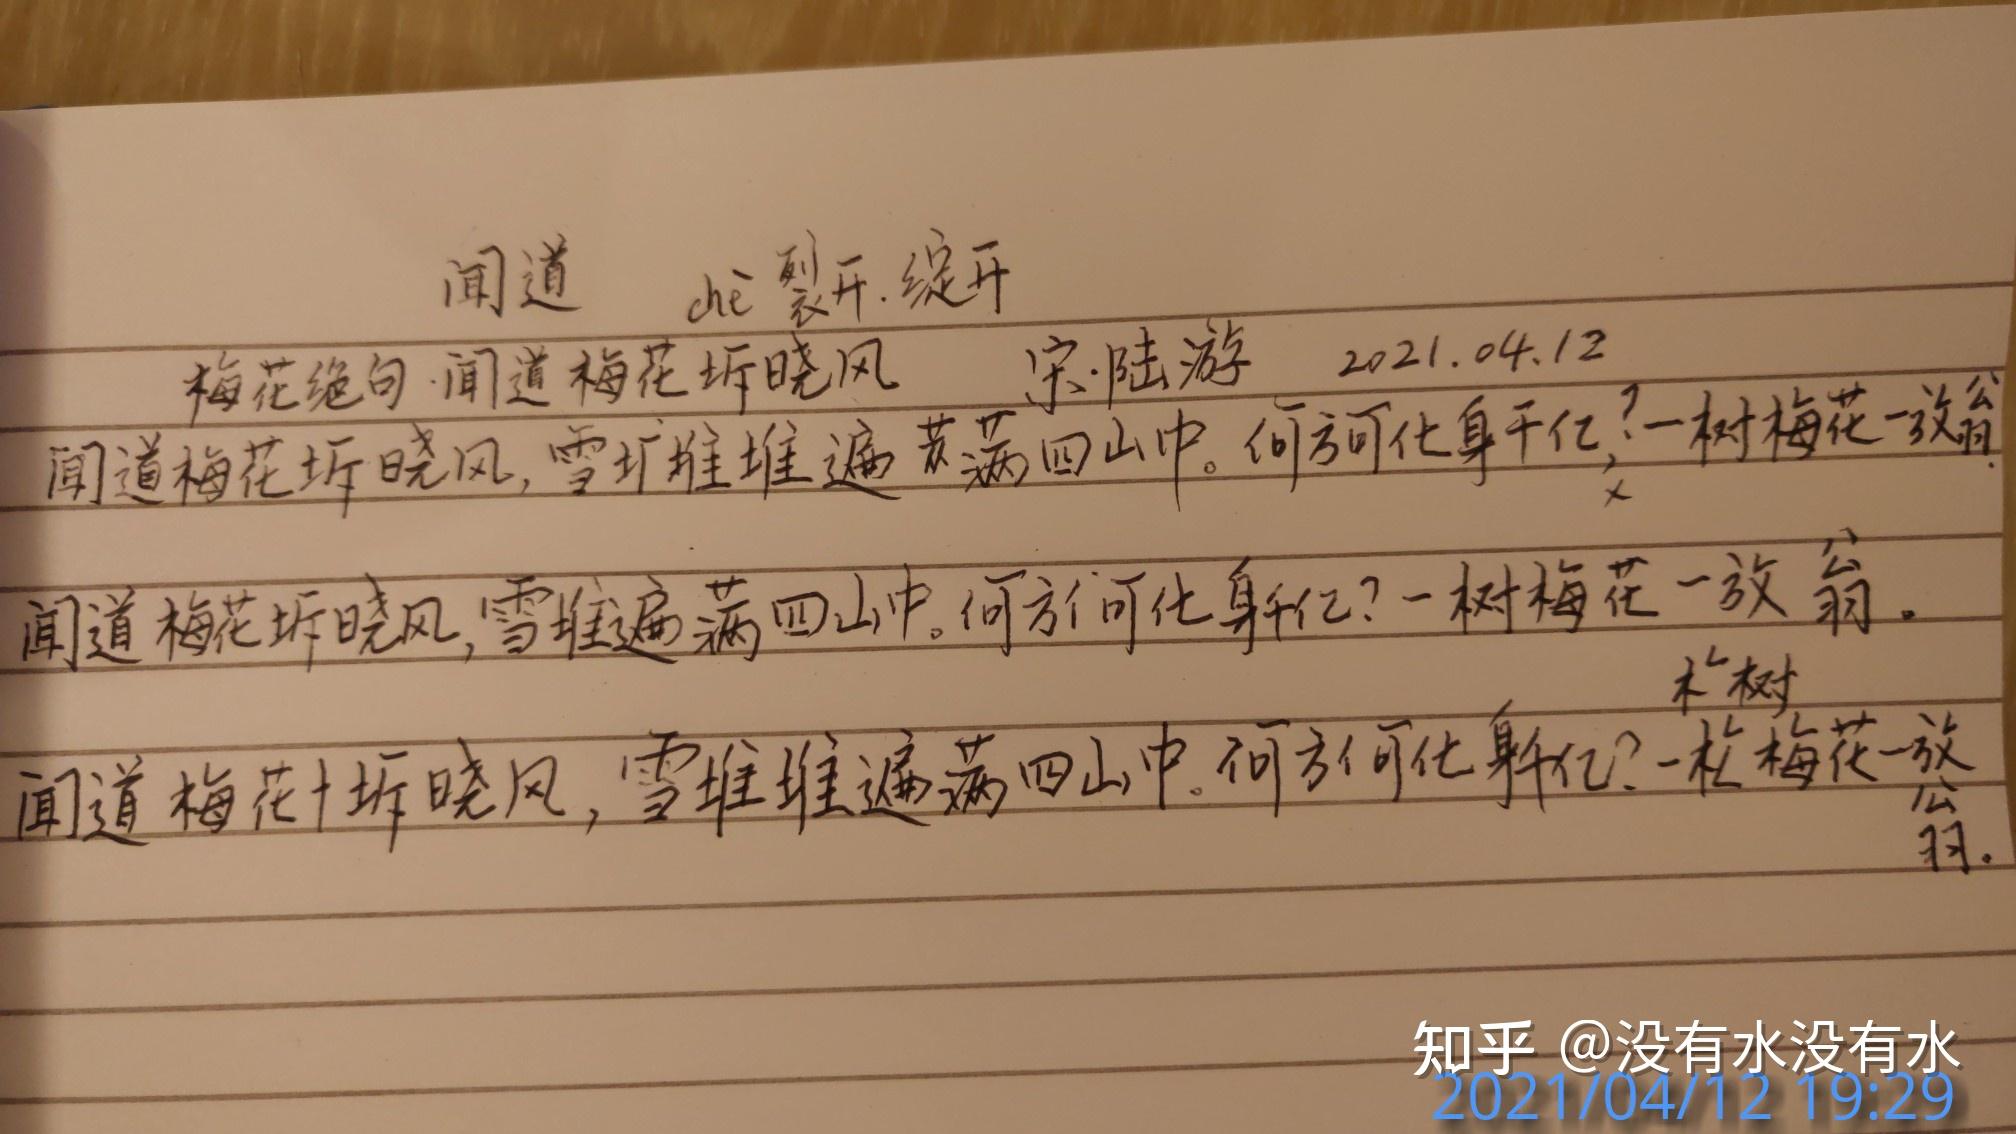 闻道 chè 裂开.绽开
梅花绝句·闻道梅花坼晓风 宋·陆游 2021.04.12
闻道梅花坼晓风,雪堆堆遍满四山中。何方可化身千亿,?一树梅花一放翁.
×
闻道梅花坼晓风,雪堆遍满四山中。何方何可化身千亿?一树梅花一放翁。
树
闻道梅花坼晓风,雪堆堆遍满四山中.何方何化身千亿?一梅花一放
翁.
知乎 @没有水没有水
2021/04/12 19:29